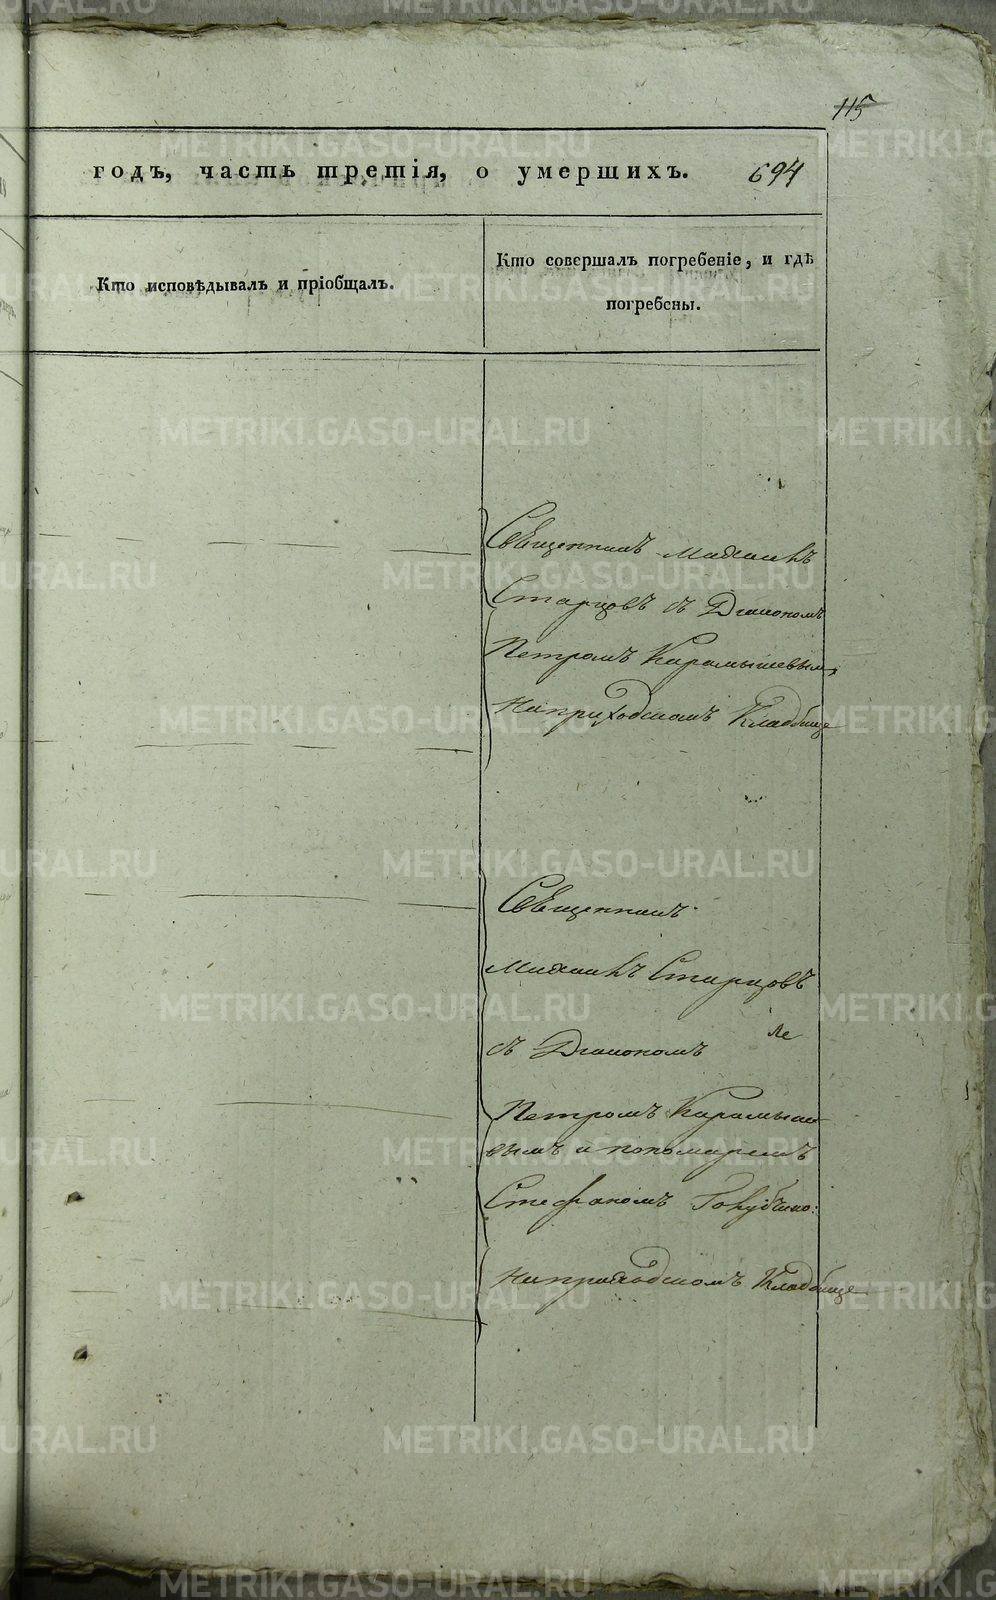 115
годъ, часть третія, о умершихъ. 694
Кто исповѣдывалъ и пріобщалъ.
Кто совершалъ погребеніе, и гдѣ
погребены.
Священникъ Михаилъ
Старцовъ съ Діакономъ
Петромъ Карамышевымъ
На приходскомъ Кладбище
Священникъ
Михаилъ Старцовъ
съ Діакономъ
Петромъ Карамыше
вымъ и пономаремъ
Стефаномъ
На приходскомъ Кладбище
METRIKI.GASO-URAL.RU